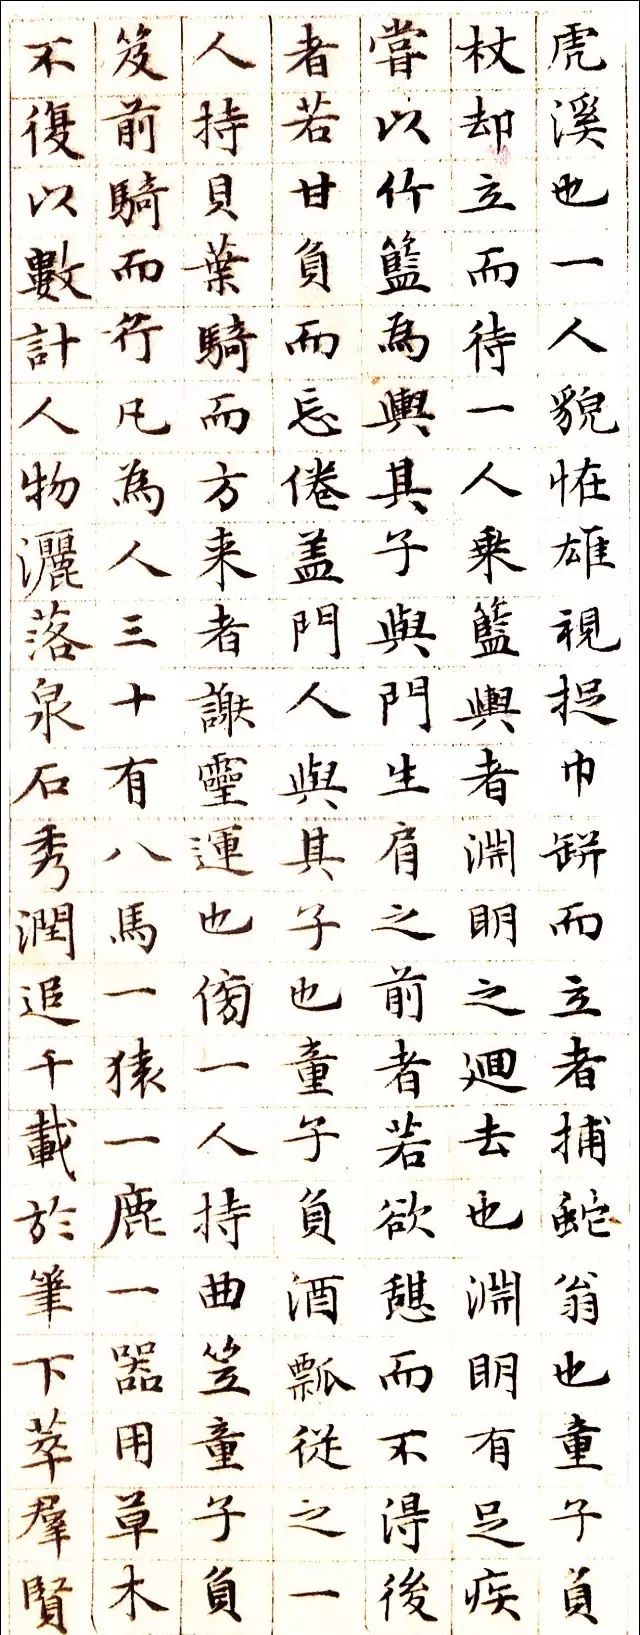 虎溪也一人貌恠雄視捉巾缾而立者捕蛇翁也童子負
杖却立而待一人乘籃輿者淵明之迴去也淵明有足疾
嘗以竹籃為輿其子與門生肩之前者若欲憩而不得後
者若甘負而忘倦盖門人與其子也童子負酒瓢從之一
人持貝葉騎而方来者謝靈運也傍一人持曲笠童子負
笈前騎而行凡為人三十有八馬一猿一鹿一器用草木
不復以數計人物灑落泉石秀潤追千載於筆下萃羣賢